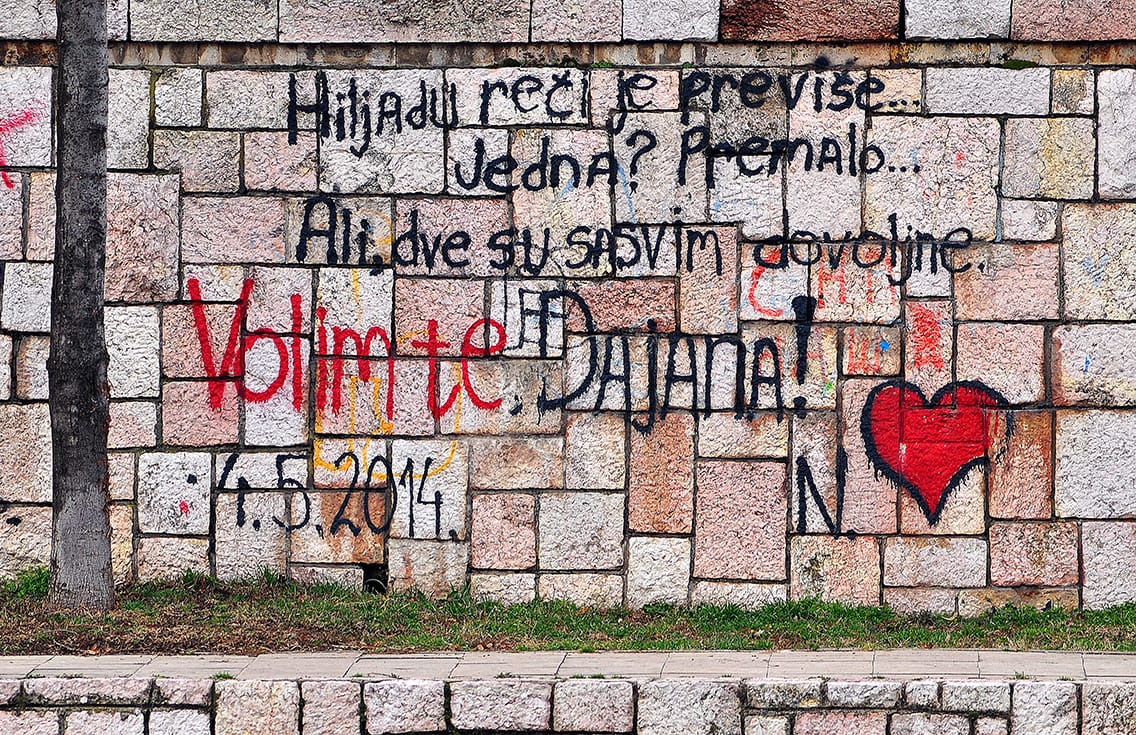 Hiljadu reči je previše...
Jedna? Premalo...
Ali, dve su sasvim dovoljne.
Volim te, Dajana!
4.5.2014. N.